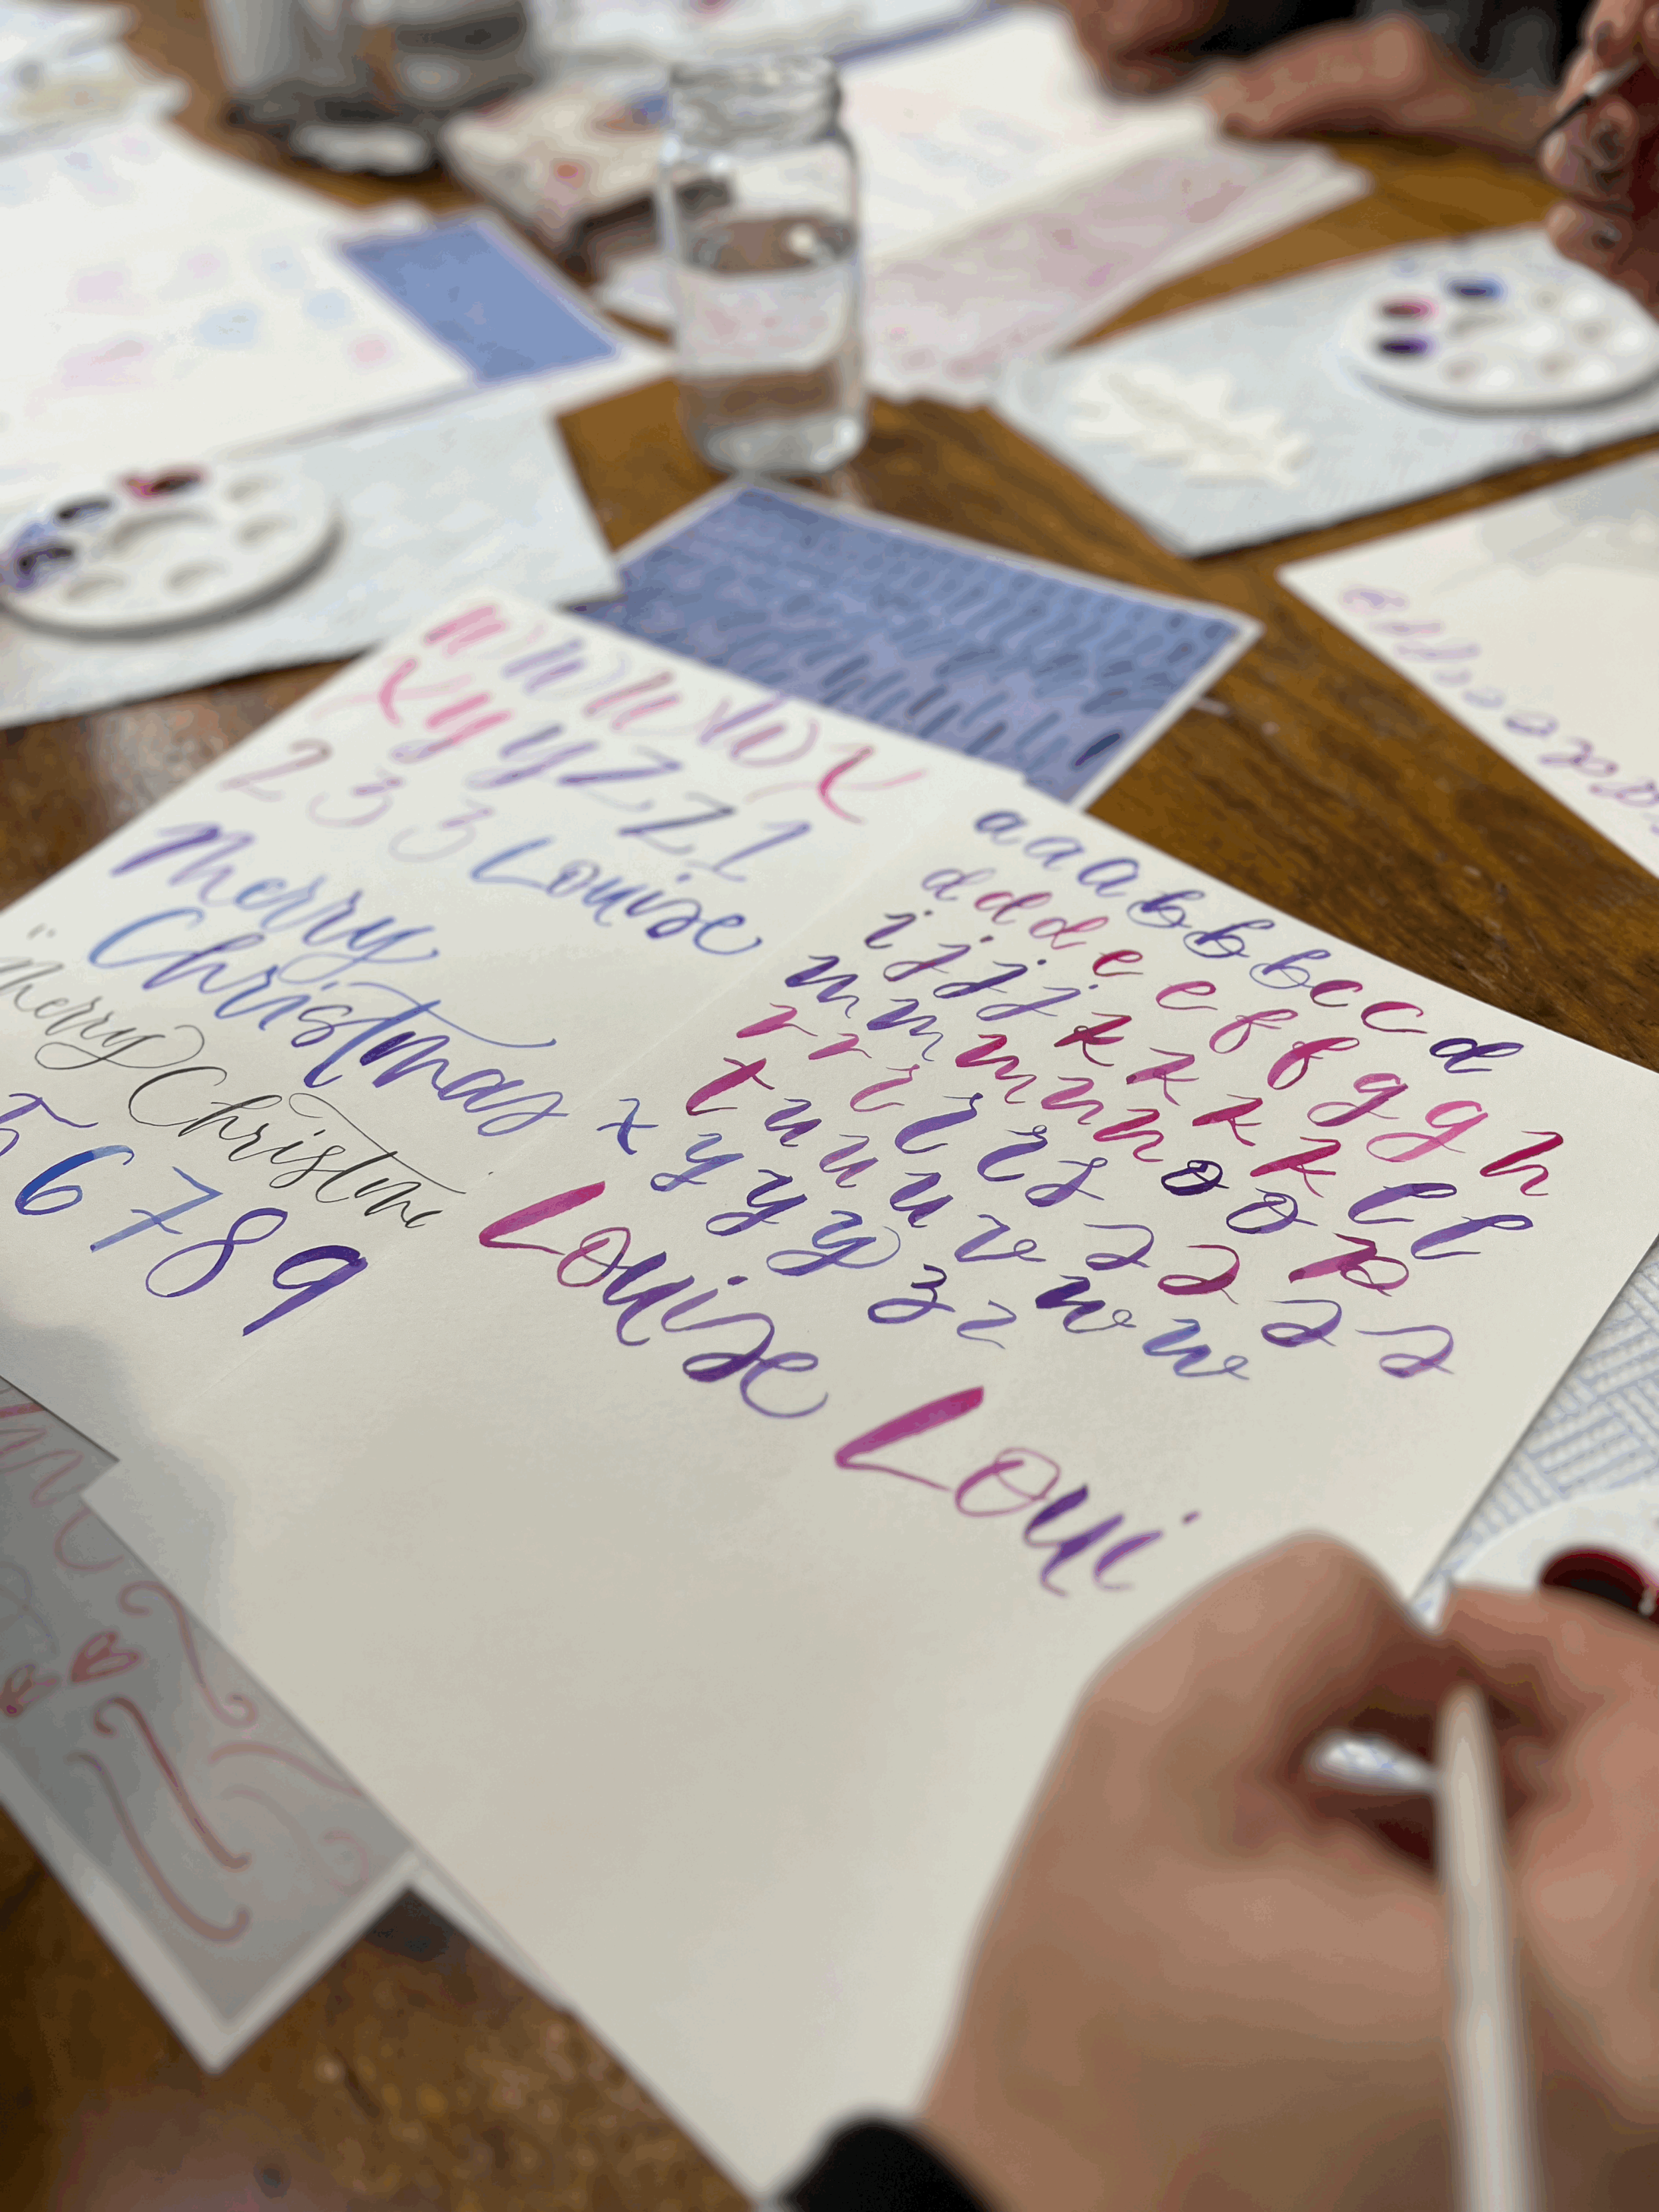 W W W W X
X y y y Z Z 1
2 3 3 Louise
Merry
Christmas
merry
Christm
5 6 7 8 9
a a a b b b c c c d
d d d e e f f g g h
i j j j k k k k l l
m m m n n o o p
r r r r r s
t u u u v
x y y y z z w w
Louise
Loui